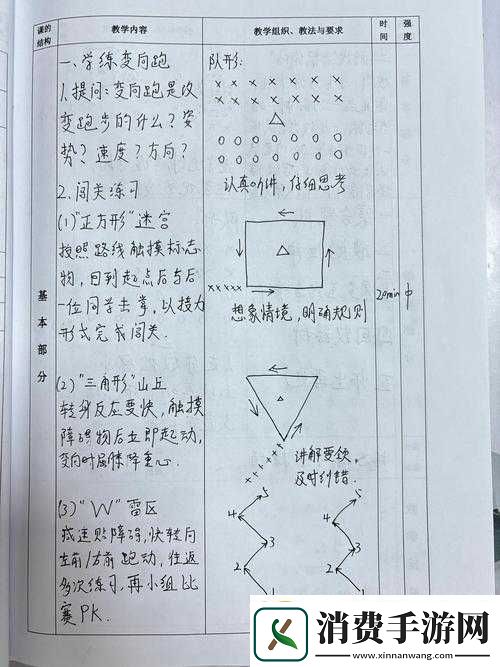 课的
结构
教学内容
教学组织、教法与要求
时
间
强
度
基
本
部
分
一、学练变向跑
1.提问:变向跑是改
变跑步的什么?姿
势?速度?方向?
2.闯关练习
(1)"正方形"迷宫
按照路线触摸标志
物,回到起点后与后
一位同学击掌,以接力
形式完成闯关.
(2)"三角形"山丘
转身反应要快,触摸
障碍物后立即起动,
变向时屈膝降重心.
(3)"W"雷区
减速贴障碍,快转向
左前/右前跑动,往返
多次练习,再小组比
赛PK.
队形:
× × × × × × ×
× × × × × × ×
○ ○ ○ ○ ○ ○ ○
○ ○ ○ ○ ○ ○ ○
认真听讲,仔细思考
×××××
想象情境,明确规则
20min
中
××××××
讲解要领,
及时纠错.
5
4
3
2
1
5
4
3
2
1
消费手游网
www.xinnanwang.com